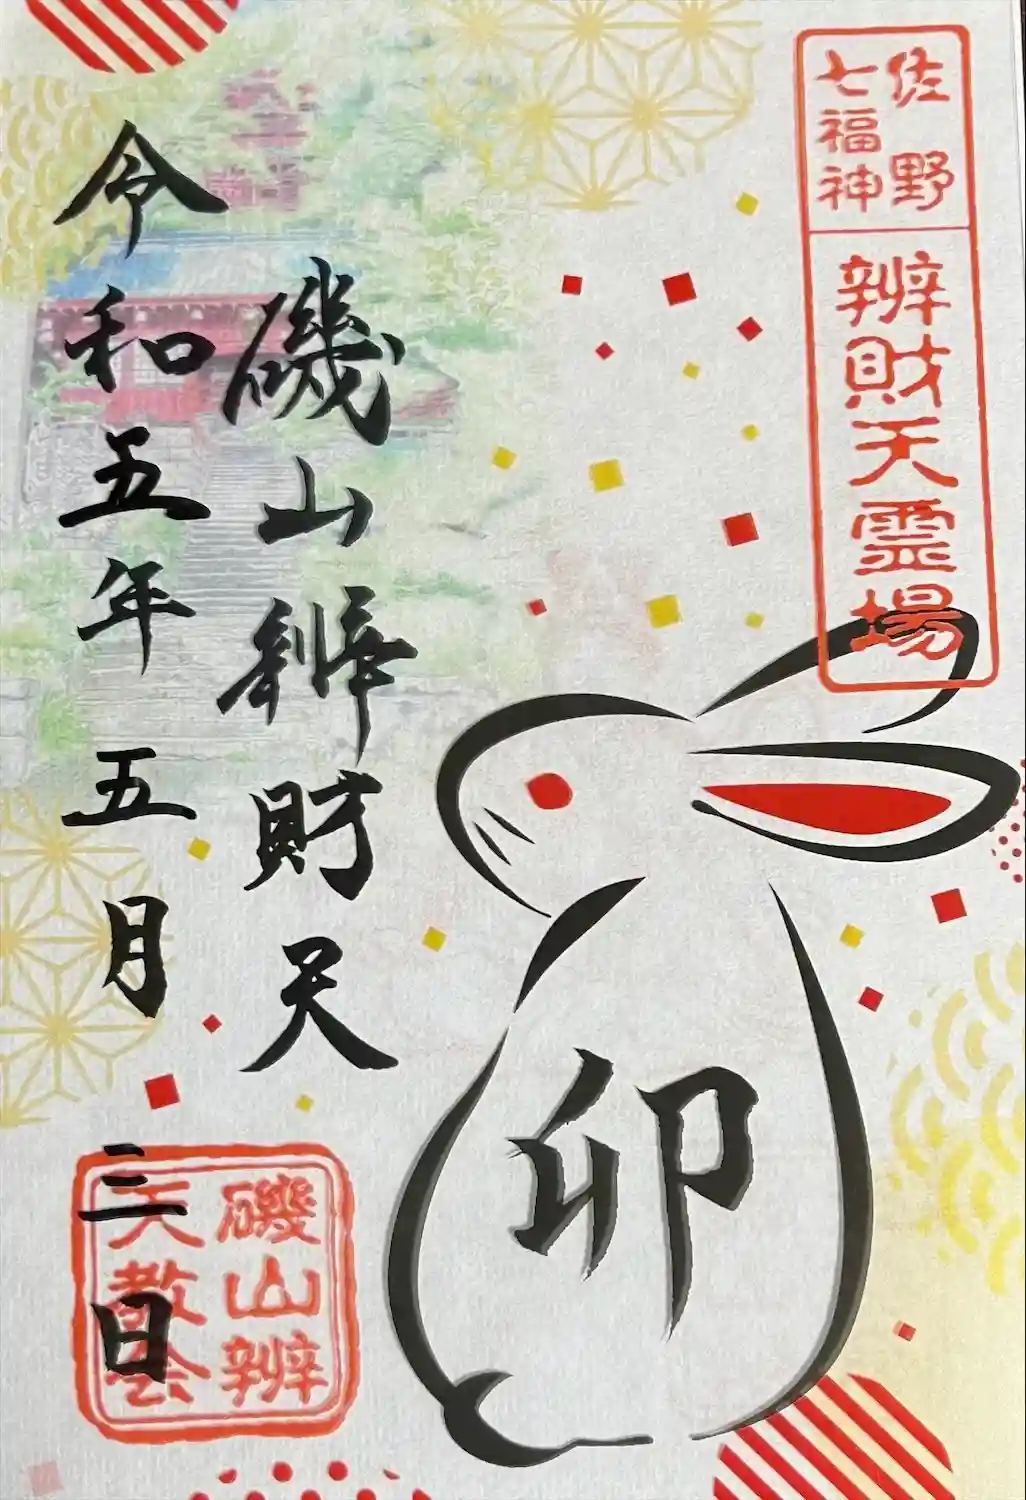 佐野
七福神
辨財天霊場
卯
磯山辨財天
令和五年五月三日
磯山辨
天教会